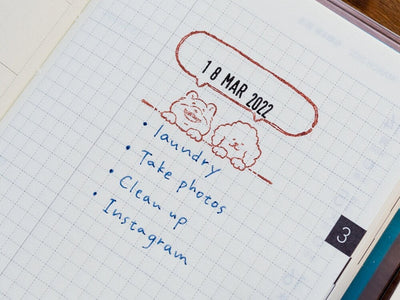 18 MAR 2022
• laundry
• Take photos
• Clean up
• Instagram
3